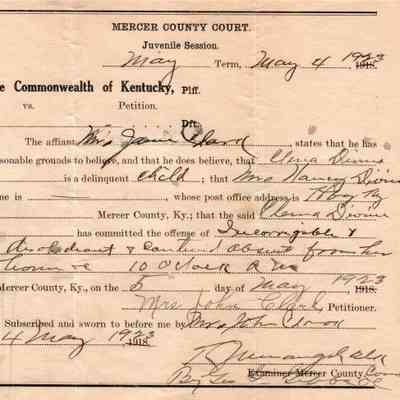 MERCER COUNTY COURT.
Juvenile Session.
May Term, May 4 1923 1918.
e Commonwealth of Kentucky, Plff.
vs. Petition.
Dft.
The affiant Mrs John Clark, states that he has
sonable grounds to believe, and that he does believe, that Clema Divine
is a delinquent child; that Mrs Nancy Divine
ne is —, whose post office address is Ky
Mercer County, Ky; that the said Clema Divine
has committed the offense of Incorrigible &
disobedient & absent from her
home 10 O'clock P.M.
Mercer County, Ky., on the 5 day of May 1923 1918.
Mrs John Clark, Petitioner.
Subscribed and sworn to before me by Mrs John Clark
4 May 1923 1918.
Examiner Mercer County,
By